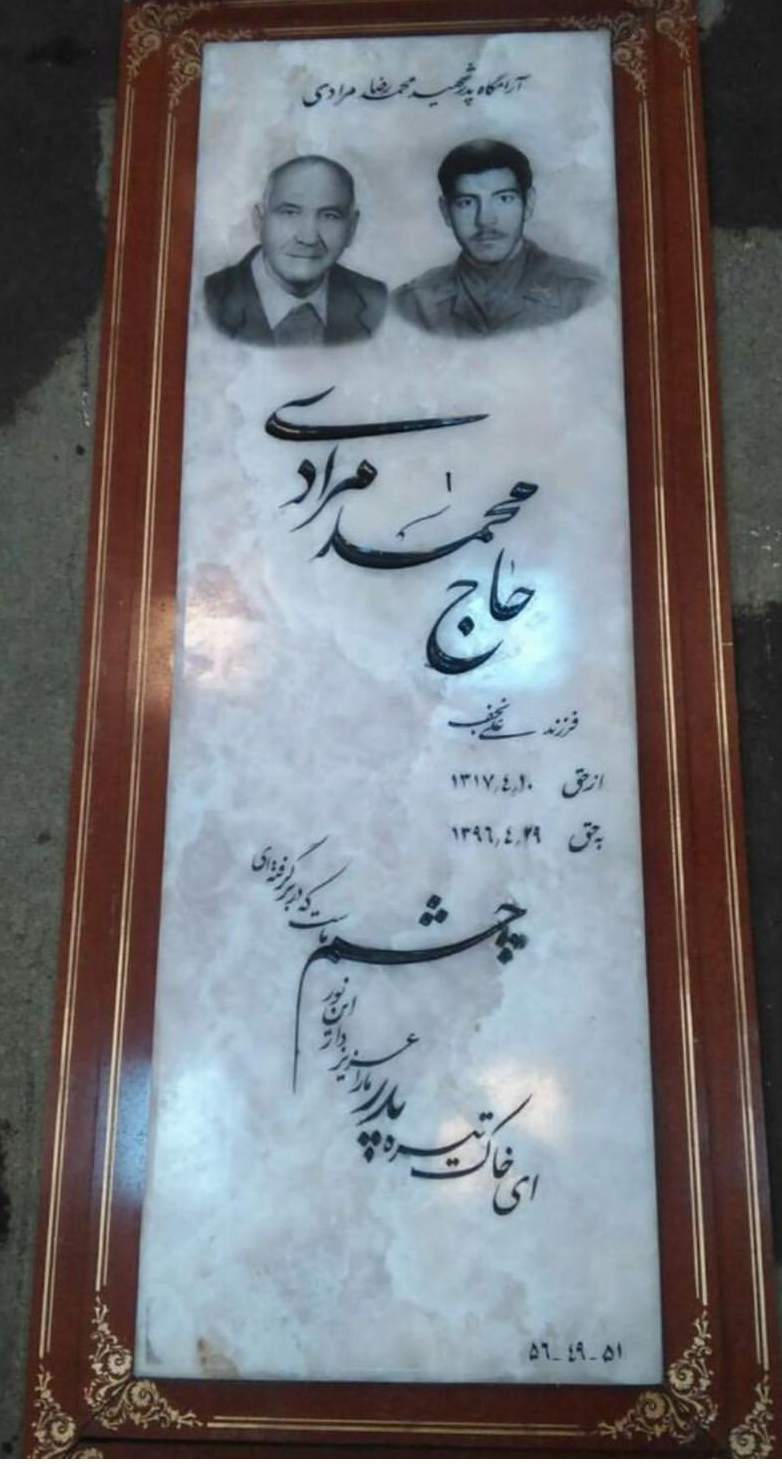 آرامگاه پدر شهید محمدرضا مرادی
حاج محمد مرادی
فرزند علی نجف
از حق ۱۳۱۷٫٤٫۱۰
به حق ۱۳۹٦٫٤٫۲۹
ای خاک تیره پدر ما را عزیز دار
این نور چشم ماست که در بر گرفته‌ای
۵٦_٤۹_۵۱